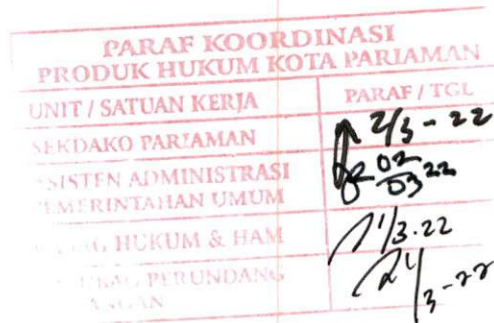 PARAF KOORDINASI
PRODUK HUKUM KOTA PARIAMAN
UNIT / SATUAN KERJA PARAF / TGL
SEKDAKO PARIAMAN 2/3 - 22
ASISTEN ADMINISTRASI 02
PEMERINTAHAN UMUM 03 22
HUKUM & HAM 1/3.22
PERUNDANG
/3-22